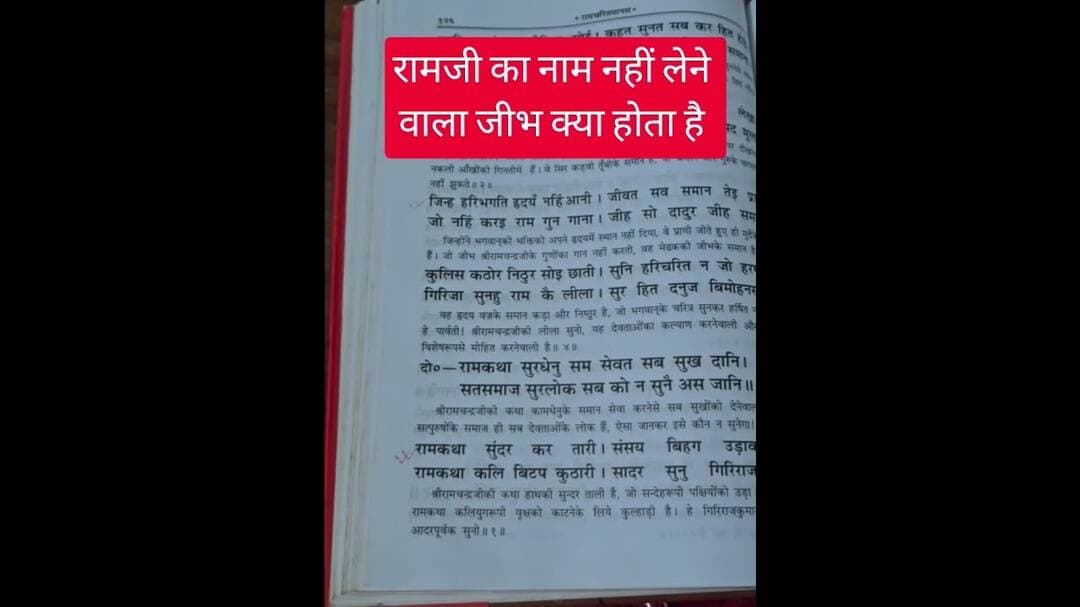 १२६
* रामचरितमानस *
कहत सुनत सब कर हित
रामजी का नाम नहीं लेने
वाला जीभ क्या होता है
नकली आँखोंकी गिनतीमें हैं। वे सिर कड़वी तूँबीके समान हैं,
नहीं झुकते॥ २॥
जिन्ह हरिभगति हृदयँ नहिं आनी। जीवत सव समान तेइ
जो नहिं करइ राम गुन गाना। जीह सो दादुर जीह
जिन्होंने भगवान्‌की भक्तिको अपने हृदयमें स्थान नहीं दिया, वे प्राणी जीते हुए ही
हैं। जो जीभ श्रीरामचन्द्रजीके गुणोंका गान नहीं करती, वह मेढककी जीभके समान
कुलिस कठोर निठुर सोइ छाती। सुनि हरिचरित न जो
गिरिजा सुनहु राम कै लीला। सुर हित दनुज
वह हृदय वज्रके समान कड़ा और निष्ठुर है, जो भगवान्‌के चरित्र सुनकर हर्षित
हे पार्वती! श्रीरामचन्द्रजीकी लीला सुनो, यह देवताओंका कल्याण करनेवाली और
विशेषरूपसे मोहित करनेवाली है॥ ४॥
दो०—रामकथा सुरधेनु सम सेवत सब सुख दानि।
सतसमाज सुरलोक सब को न सुनै अस जानि॥
श्रीरामचन्द्रजीकी कथा कामधेनुके समान सेवा करनेसे सब सुखोंको
सत्पुरुषोंके समाज ही सब देवताओंके लोक हैं, ऐसा जानकर इसे कौन न सुनेगा!
रामकथा सुंदर कर तारी। संसय बिहग
रामकथा कलि बिटप कुठारी। सादर सुनु
श्रीरामचन्द्रजीकी कथा हाथकी सुन्दर ताली है, जो सन्देहरूपी पक्षियोंको उड़ा
रामकथा कलियुगरूपी वृक्षको काटनेके लिये कुल्हाड़ी है। हे
आदरपूर्वक सुनो॥ १॥